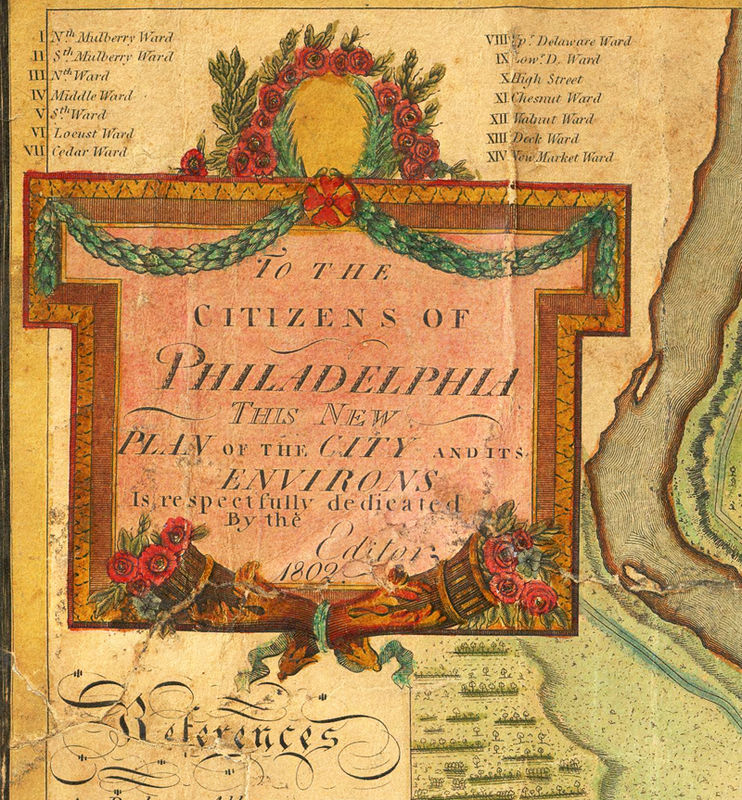 I Nth Mulberry Ward
II Sth Mulberry Ward
III Nth Ward
IV Middle Ward
V Sth Ward
VI Locust Ward
VII Cedar Ward
VIII Upr. Delaware Ward
IX Lowr. D. Ward
X High Street
XI Chesnut Ward
XII Walnut Ward
XIII Dock Ward
XIV New Market Ward
To THE
CITIZENS OF
PHILADELPHIA
THIS NEW
PLAN OF THE CITY AND ITS
ENVIRONS
Is, respectfully dedicated
By the
Editor.
1802.
References